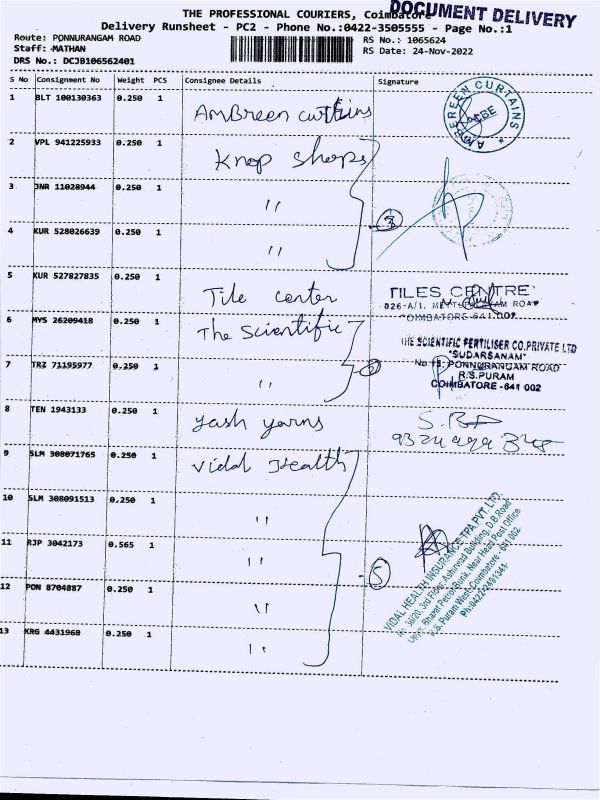 THE PROFESSIONAL COURIERS, Coimbatore
DOCUMENT DELIVERY
Delivery Runsheet - PC2 - Phone No.:0422-3505555 - Page No.:1
Route: PONNURANGAM ROAD
RS No.: 1065624
Staff: MATHAN
RS Date: 24-Nov-2022
DRS No.: DCJB106562401
S No Consignment No Weight PCS Consignee Details Signature
1 BLT 100130363 0.250 1 AmBreen curtains
AMBEREEN CURTAINS
2 VPL 941225933 0.250 1 Knop shops
3 JNR 11028944 0.250 1 "
4 KUR 528026639 0.250 1 "
5 KUR 527827835 0.250 1 Tile center
TILES CENTRE
ROAD
COIMBATORE-641 002
6 MYS 26209418 0.250 1 The Scientific
THE SCIENTIFIC FERTILISER CO.PRIVATE LTD
"SUDARSANAM"
PONNURANGAM ROAD
R.S.PURAM
COIMBATORE-641 002
7 TRZ 71195977 0.250 1 "
8 TEN 1943133 0.250 1 yash yarns
9 SLM 308071765 0.250 1 Vidal Health
10 SLM 308091513 0.250 1 "
11 RJP 3042173 0.565 1 "
5
12 PON 8704887 0.250 1 "
13 KRG 4431968 0.250 1 "
VIDAL HEALTH INSURANCE TPA PVT. LTD.
3rd Floor, Ashirvad Building, D.B.Road
Opp. Bharat Petrol Bunk, Near Head Post Office
R.S. Puram West, Coimbatore - 641 002